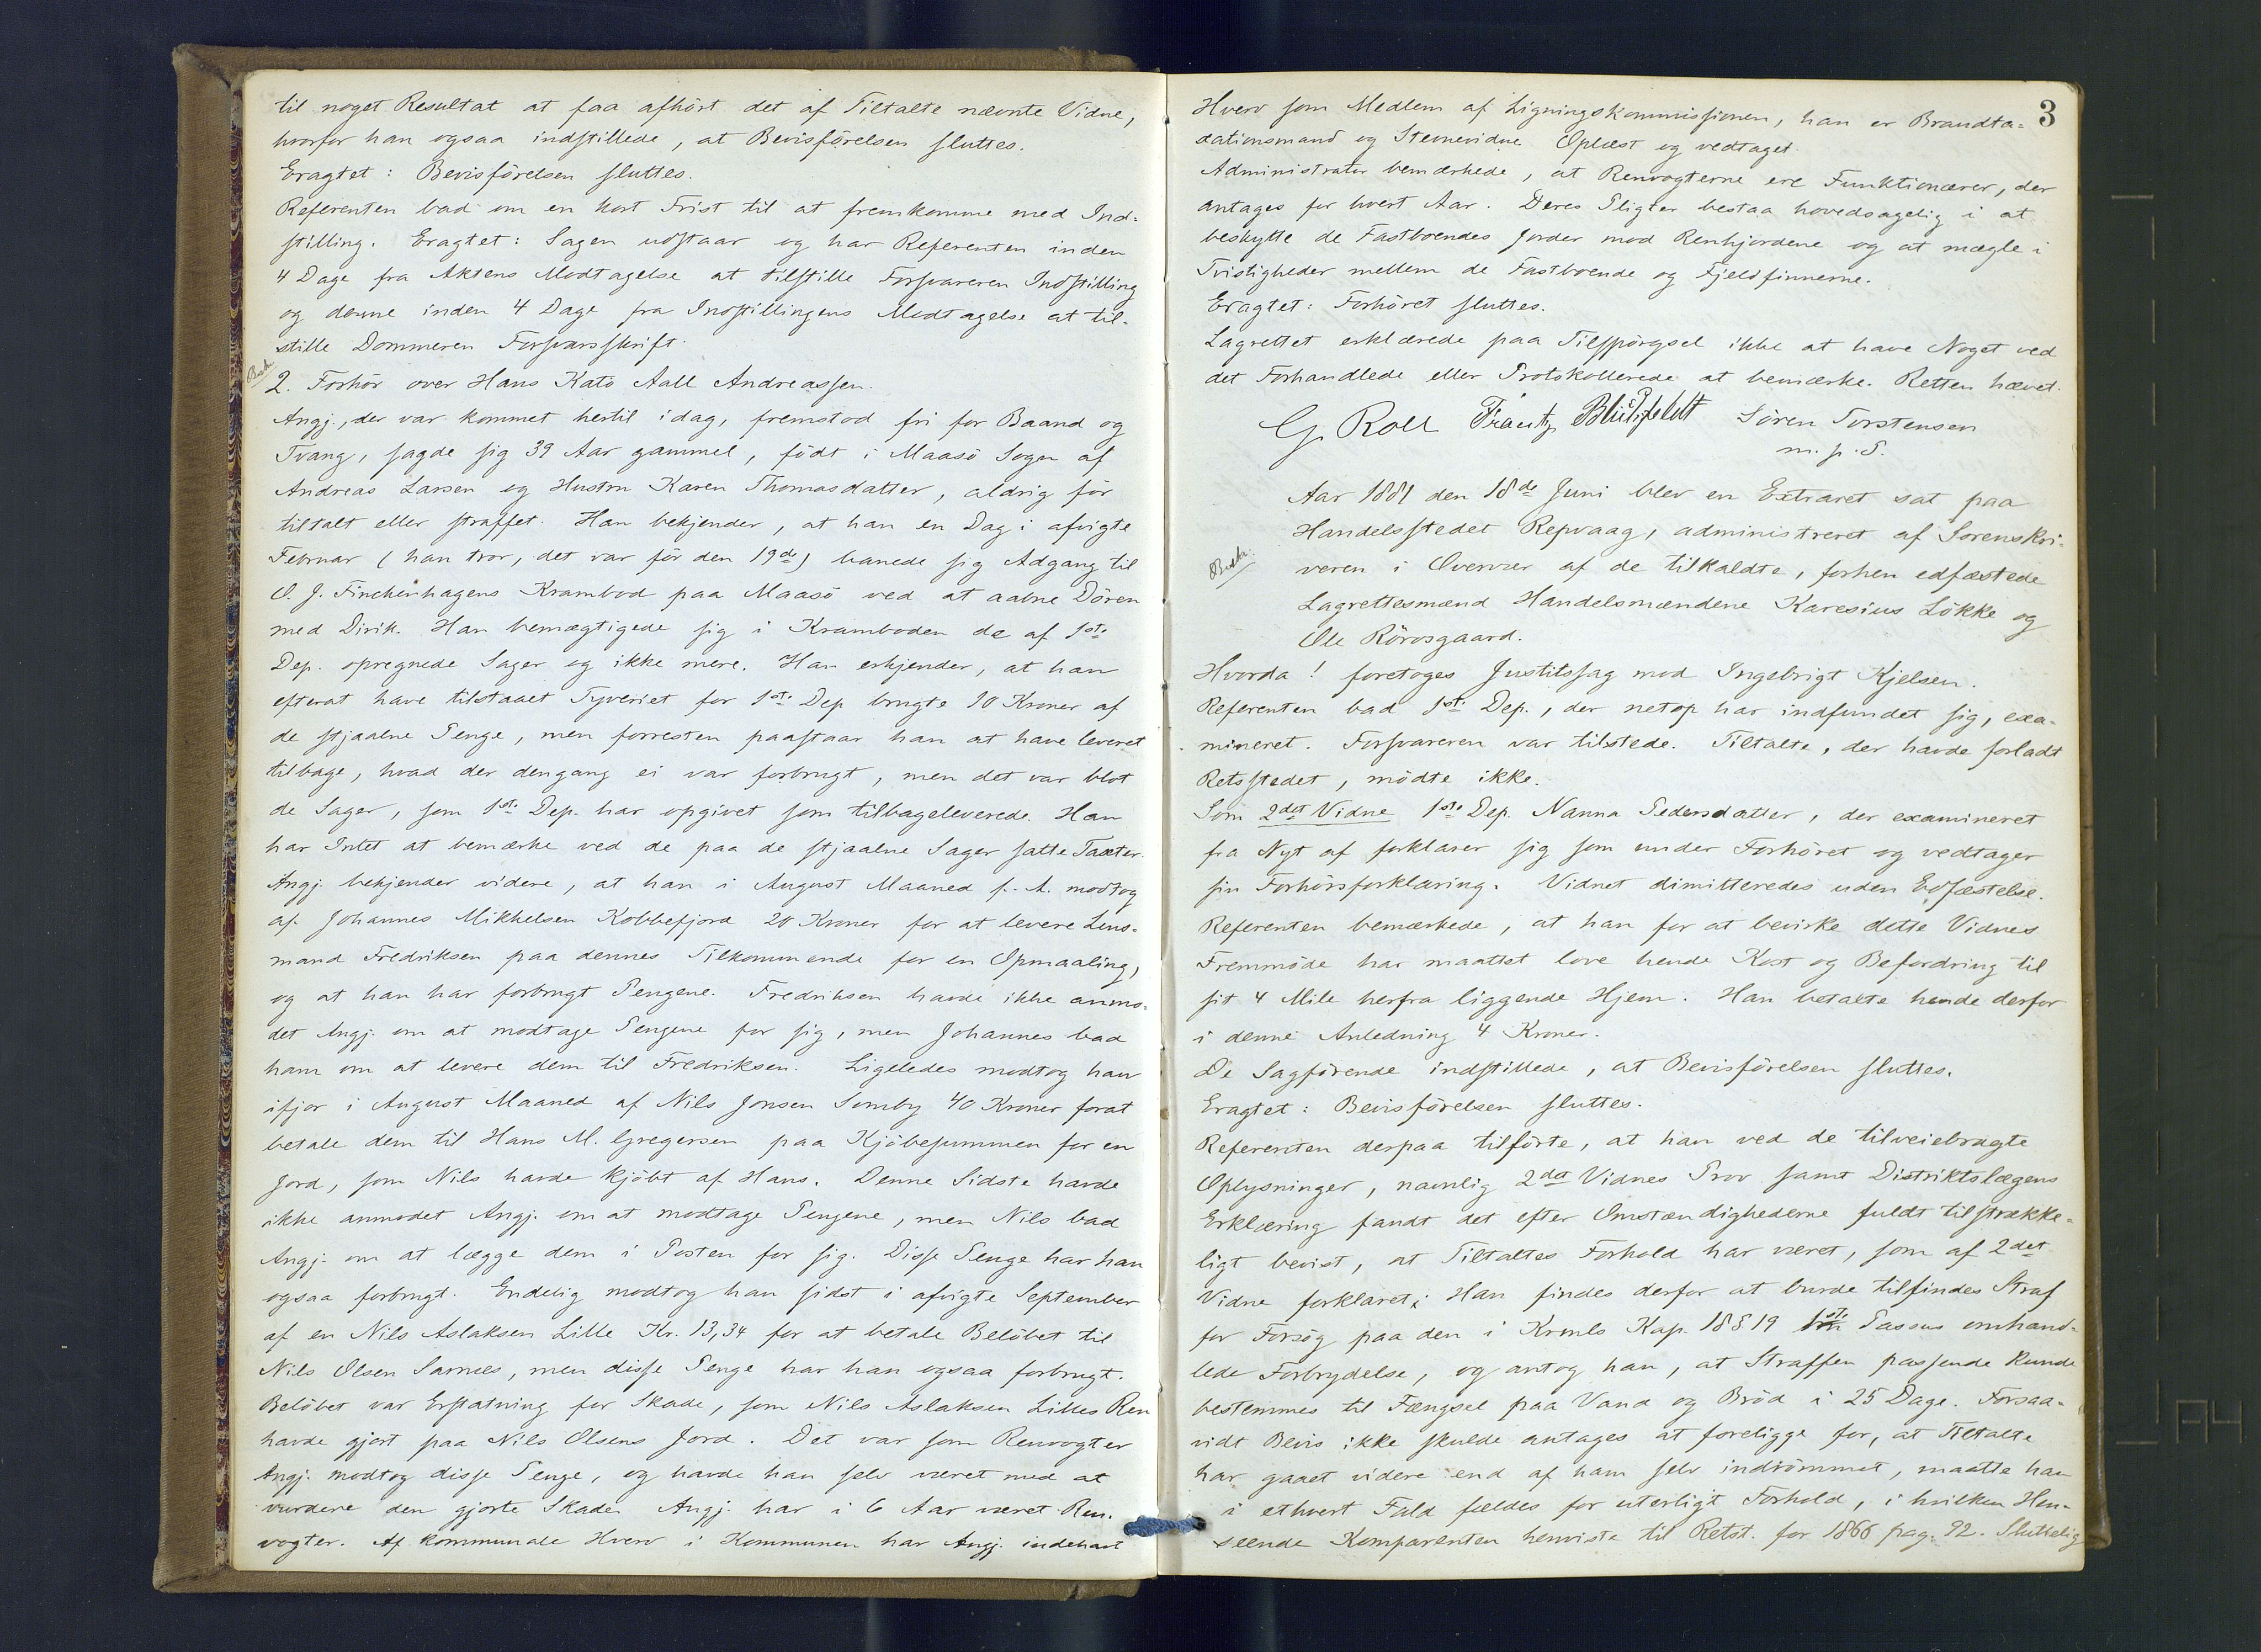 til noget Resultat at faa afhört det af Tiltalte nævnte Vidne,
hvorfor han ogsaa indstillede, at Bevisförelsen sluttes.
Eragtet: Bevisförelsen sluttes.
Referenten bad om en kort Frist til at fremkomme med Ind-
stilling. Eragtet: Sagen udstaar og har Referenten inden
4 Dage fra Aktens Modtagelse at tilstille Forsvareren Indstilling
og denne inden 4 Dage fra Indstillingens Modtagelse at til-
stille Dommeren Forsvarsskrift.
Besk.
2. Forhör over Hans Kato Aall Andreassen.
Angj., der var kommet hertil idag, fremstod fri for Baand og
Tvang, sagde sig 39 Aar gammel, födt i Maasö Sogn af
Andreas Larsen og Hustru Karen Thomasdatter, aldrig för
tiltalt eller straffet. Han bekjender, at han en Dag i afvigte
Februar (han tror, det var för den 19de) banede sig Adgang til
O. J. Finckenhagens Krambod paa Maasö ved at aabne Dören
med Dirik. Han bemægtigede sig i Kramboden de af 1ste
Dep. opregnede Sager og ikke mere. Han erkjender, at han
efterat have tilstaaet Tyveriet for 1ste Dep brugte 10 Kroner af
de stjaalne Penge, men forresten paastaar han at have leveret
tilbage, hvad der dengang ei var forbrugt, men det var blot
de Sager, som 1ste Dep. har opgivet som tilbageleverede. Han
har Intet at bemærke ved de paa de stjaalne Sager satte Taxter.
Angj. bekjender videre, at han i August Maaned f. A. modtog
af Johannes Mikkelsen Kobbefjord 20 Kroner for at levere Lens-
mand Fredriksen paa dennes Tilkommende for en Opmaaling,
og at han har forbrugt Pengene. Fredriksen havde ikke anmo-
det Angj. om at modtage Pengene for sig, men Johannes bad
ham om at levere dem til Fredriksen. Ligeledes modtog han
ifjor i August Maaned af Nils Jonsen Somby 40 Kroner forat
betale dem til Hans M. Gregersen paa Kjöbesummen for en
Jord, som Nils havde kjöbt af Hans. Denne Sidste havde
ikke anmodet Angj. om at modtage Pengene, men Nils bad
Angj. om at lægge dem i Posten for sig. Disse Penge har han
ogsaa forbrugt. Endelig modtog han sidst i afvigte September
af en Nils Aslaksen Lille Kr. 13,34 for at betale Belöbet til
Nils Olsen Sarnes, men disse Penge har han ogsaa forbrugt.
Belöbet var Erstatning for Skade, som Nils Aslaksen Lilles Ren
havde gjort paa Nils Olsens Jord. Det var som Renvogter
Angj. modtog disse Penge, og havde han selv været med at
vurdere den gjorte Skade. Angj. har i 6 Aar været Ren-
vogter. Af kommunale Hverv i Kommunen har Angj. indehavt
3
Hverv som Medlem af Ligningskommissionen, han er Brandta-
xationsmand og Stevnevidne. Oplæst og vedtaget.
Administrator bemærkede, at Renvogterne ere Funktionærer, der
antages for hvert Aar. Deres Pligter bestaa hovedsagelig i at
beskytte de Fastboendes Jorder mod Renhjordene og at mægle i
Tvistigheder mellem de Fastboende og Fjeldfinnerne.
Eragtet: Forhöret sluttes.
Lagrettet erklærede paa Tilspörgsel ikke at have Noget ved
det Forhandlede eller Protokollerede at bemærke. Retten hævet.
G. Roll Frantz Blütsfeldt Sören Torstensen
m. p. P.
Aar 1881 den 18de Juni blev en Extraret sat paa
Handelsstedet Repvaag, administreret af Sorenskri-
Beskr.
veren i Overvær af de tilkaldte, forhen edfæstede
Lagrettesmænd Handelsmændene Karesius Lökke og
Ole Rörosgaard.
Hvorda! foretoges Justitssag mod Ingebrigt Kjelsen.
Referenten bad 1ste Dep., der netop har indfundet sig, exa-
mineret. Forsvareren var tilstede. Tiltalte, der havde forladt
Retsstedet, mödte ikke.
Som 2det Vidne 1ste Dep. Nanna Pedersdatter, der examineret
fra Nyt af forklarer sig som under Forhöret og vedtager
sin Forhörsforklaring. Vidnet dimitteredes uden Edfæstelse.
Referenten bemærkede, at han for at bevirke dette Vidnes
Fremmöde har maattet love hende Kost og Befordring til
sit 4 Mile herfra liggende Hjem. Han betalte hende derfor
i denne Anledning 4 Kroner.
De Sagförende indstillede, at Bevisförelsen sluttes.
Eragtet: Bevisförelsen sluttes.
Referenten derpaa tilförte, at han ved de tilveiebragte
Oplysninger, navnlig 2det Vidnes Prov samt Distriktslægens
Erklæring fandt det efter Omstændighederne fuldt tilstrække-
ligt bevist, at Tiltaltes Forhold har været, som af 2det
Vidne forklaret; Han findes derfor at burde tilfindes Straf
for Forsög paa den i Krmls Kap. 18 § 19 1ste Passus omhand-
lede Forbrydelse, og antog han, at Straffen passende kunde
bestemmes til Fængsel paa Vand og Bröd i 25 Dage. Forsaa-
vidt Bevis ikke skulde antages at foreligge for, at Tiltalte
har gaaet videre end af ham selv indrömmet, maatte han
i ethvert Fald fældes for uterligt Forhold, i hvilken Hen-
seende Komparenten henviste til Retst. for 1866 pag. 92. Sluttelig